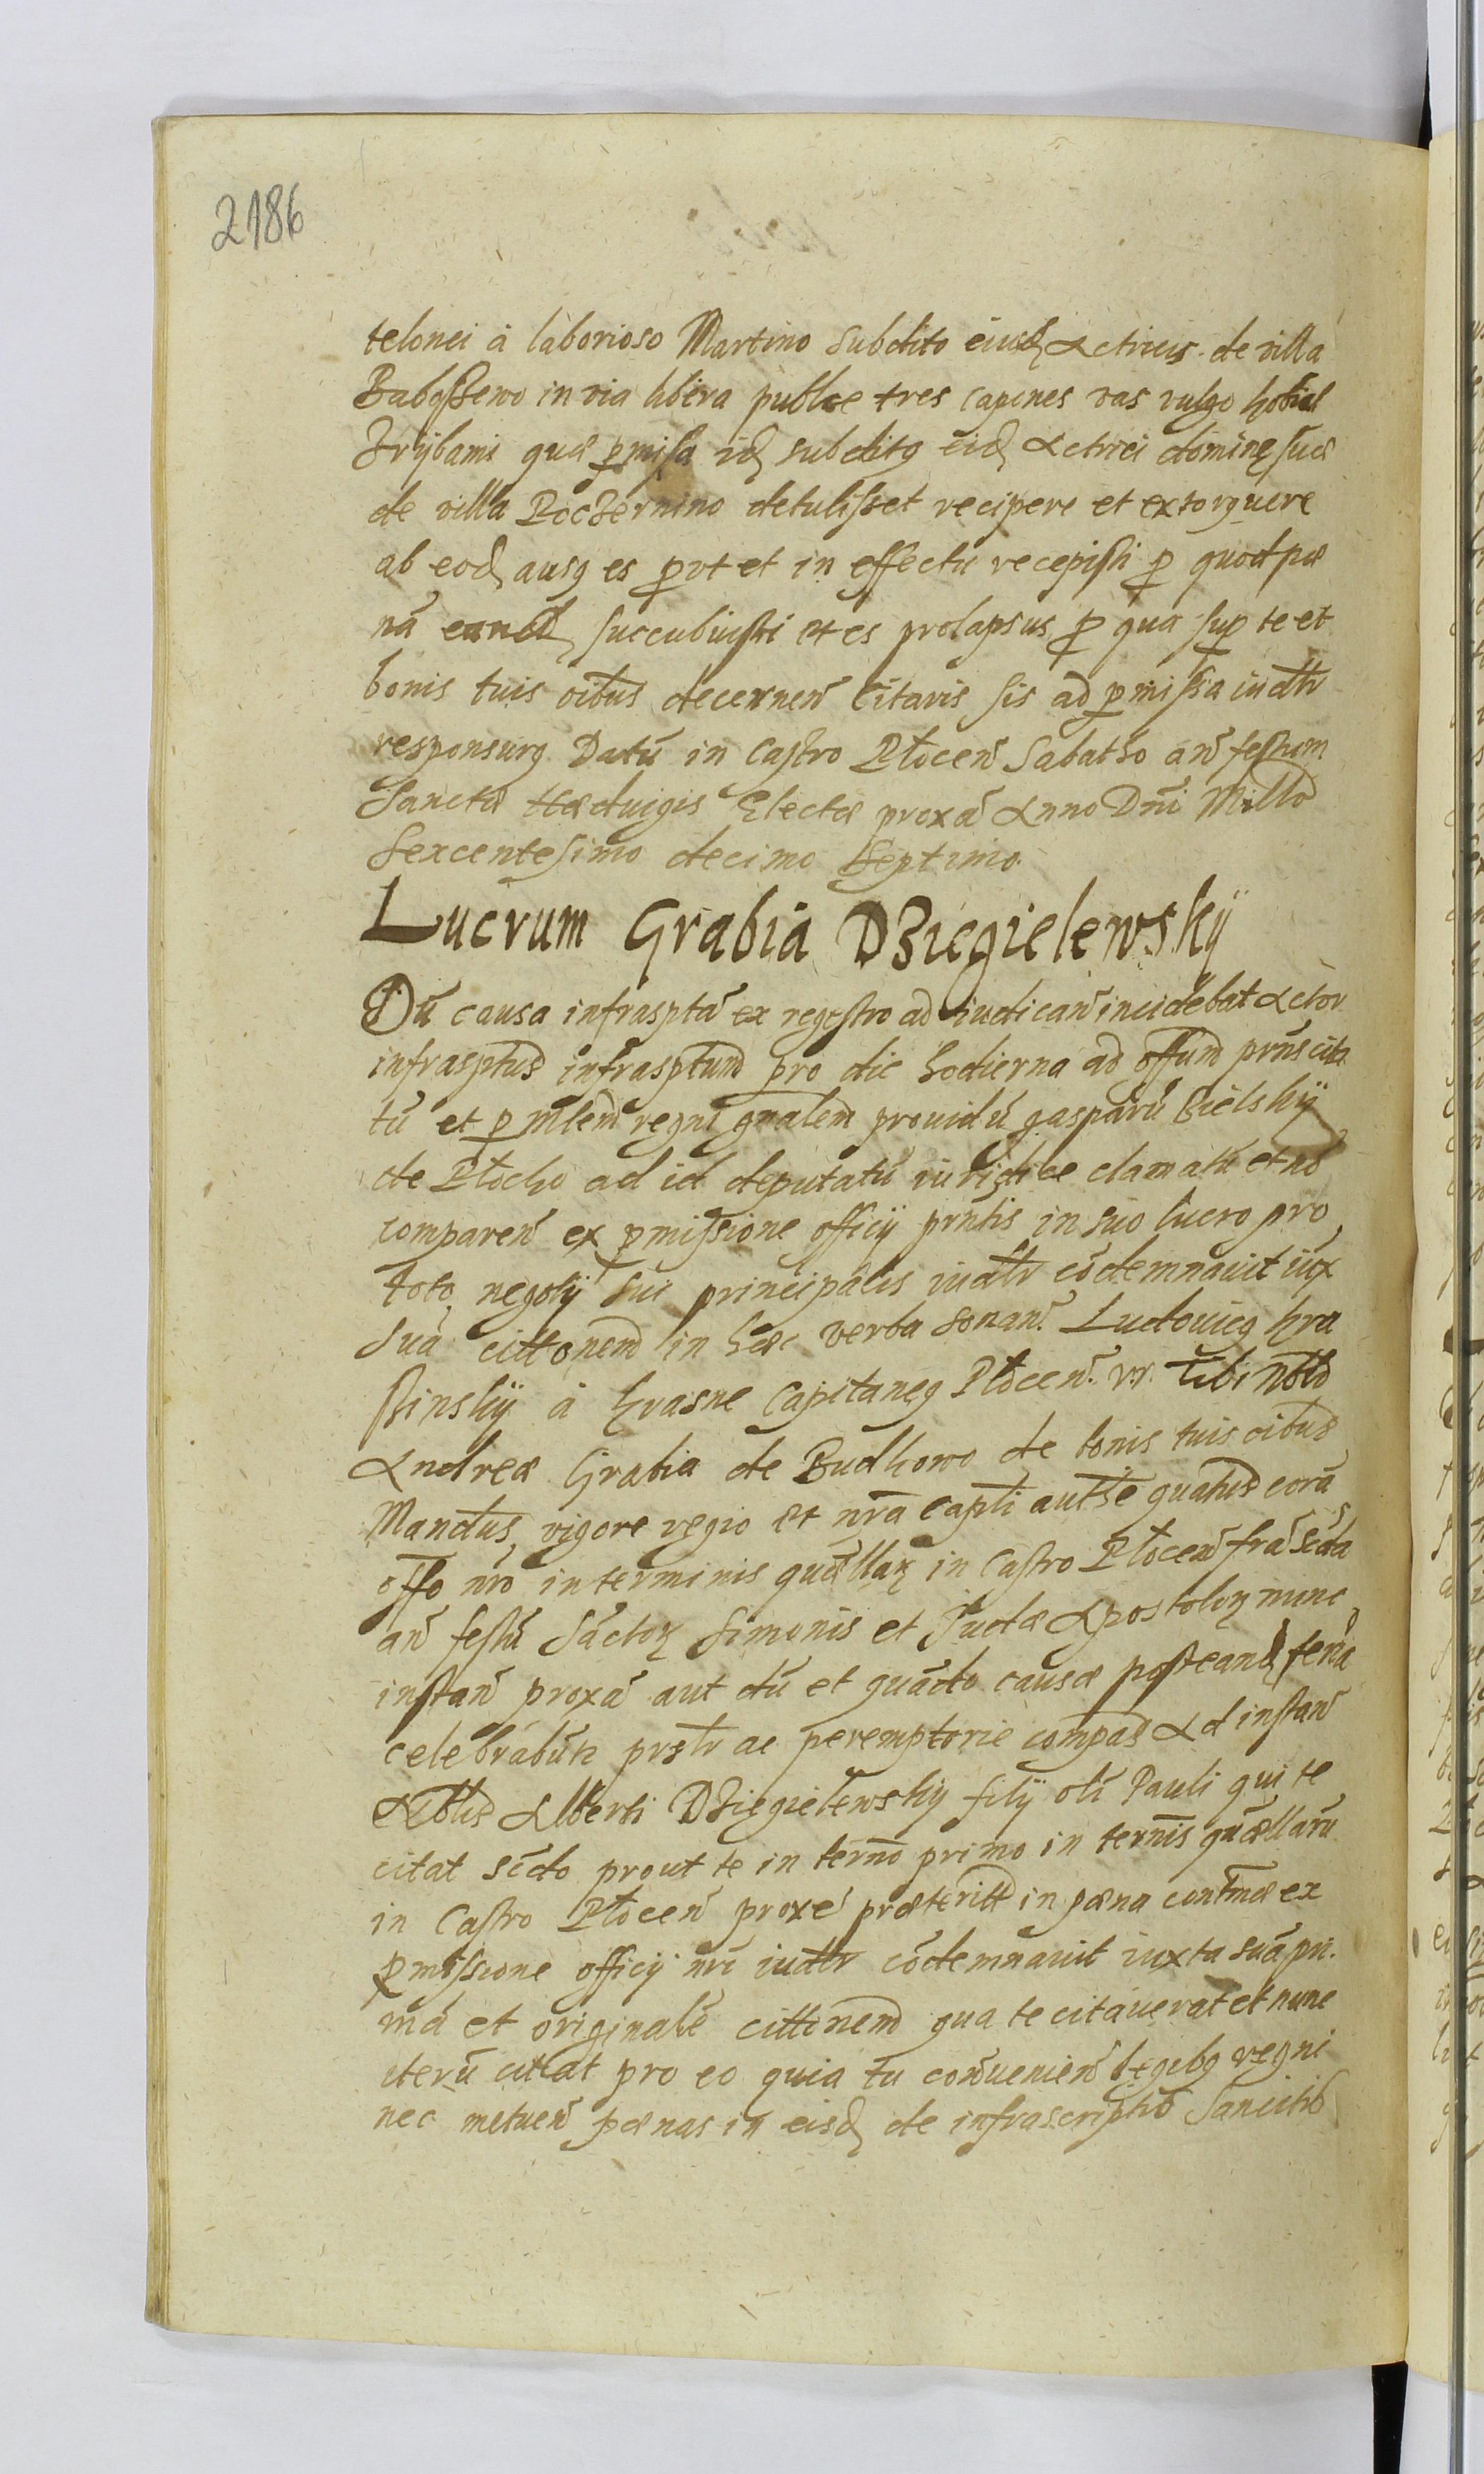 2186
telonei à laborioso Martino subdito eiusd Actricis de villa
Babosſewo in via libera publce tres capones vas vulgo kobiel
zrÿbami quæ pmiſsa id subditꝯ eid Actrici dominę ſuæ
de villa Poczernino detuliſset recipere et extorquere
ab eod ausꝯ es put et in effectu recepiſti p quod pæ
nā eand ſuccubuiſti et es prolapsus p qua ſup te et
bonis tuis oibus decernen̄ Citaris ſis ad pmiſsa iudtr
responsurꝯ Datū in Caſtro Płocen̄ Sabatho an̄ feſtum
Sanctæ Hæduigis Electæ proxā Anno Dni Millo
Sexcenteſimo decimo Septimo
Lucrum Grabia DZiegielewskÿ
Dū causa infrasptā ex regeſtro ad iudican̄ incidebat Actor
infrasptus infrasptum pro die hodierna ad offum prns cita
tū et p mlem regni gnalem prouidū gasparū Bielskÿ
de Płocko ad id deputatū iuridice clamatū et nō
comparen̄ ex pmiſsione officÿ prntis in suo lucro pro
toto negotÿ sui principalis iudtr cōdemnauit iux
suā cittonem in hæc verba sonan̄. Ludouicꝯ kra
ſinskÿ à kraſne Capitaneꝯ Płocen̄. vr. Tibi Nobli
Andreæ Grabia de Budkowo de bonis tuis oibus
Mandus, vigore regio et nrā capli authe quatus corā
offo nrō in terminis quællaꝝ in Caſtro Płocen̄ frā scda
an̄ feſtū Sāctoꝝ Simonis et Judæ Apostoloꝝ nunc
inſtan̄ proxā aut dū et quādo causæ poſt eand feriā
celebrabūtr prsltr ac peremptorie compas Ad inſtan̄
Nobilis Alberti DZiegielewskÿ filÿ oli Pauli qui te
citat scdo prout te in termo primo in ternis quællarū
in Caſtro Płocen̄ proxe præteritt in pæna contmæ ex
pmiſsione officÿ nri iudtr cōdemnauit iuxta suā pri.
mā et originalē cittonem qua te citauerat et nunc
iterū citat pro eo quia tu conuenien̄ legibꝯ regni
nec metuen̄ pænas in eisd de infrascriptis Sancitis